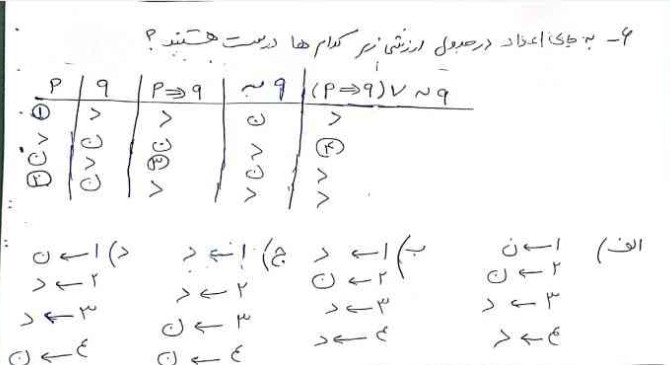 ۶- به جای اعداد در جدول ارزشی زیر کدام ها درست هستند؟
p q p⇒q ~q (p⇒q)∨~q
① د د ن د
د ن ن د ④
ن د ③ ن د
② ن د د د
الف) ۱←ن ب) ۱←د ج) ۱←د د) ۱←ن
۲←ن ۲←ن ۲←د ۲←د
۳←د ۳←د ۳←ن ۳←د
۴←د ۴←د ۴←ن ۴←ن